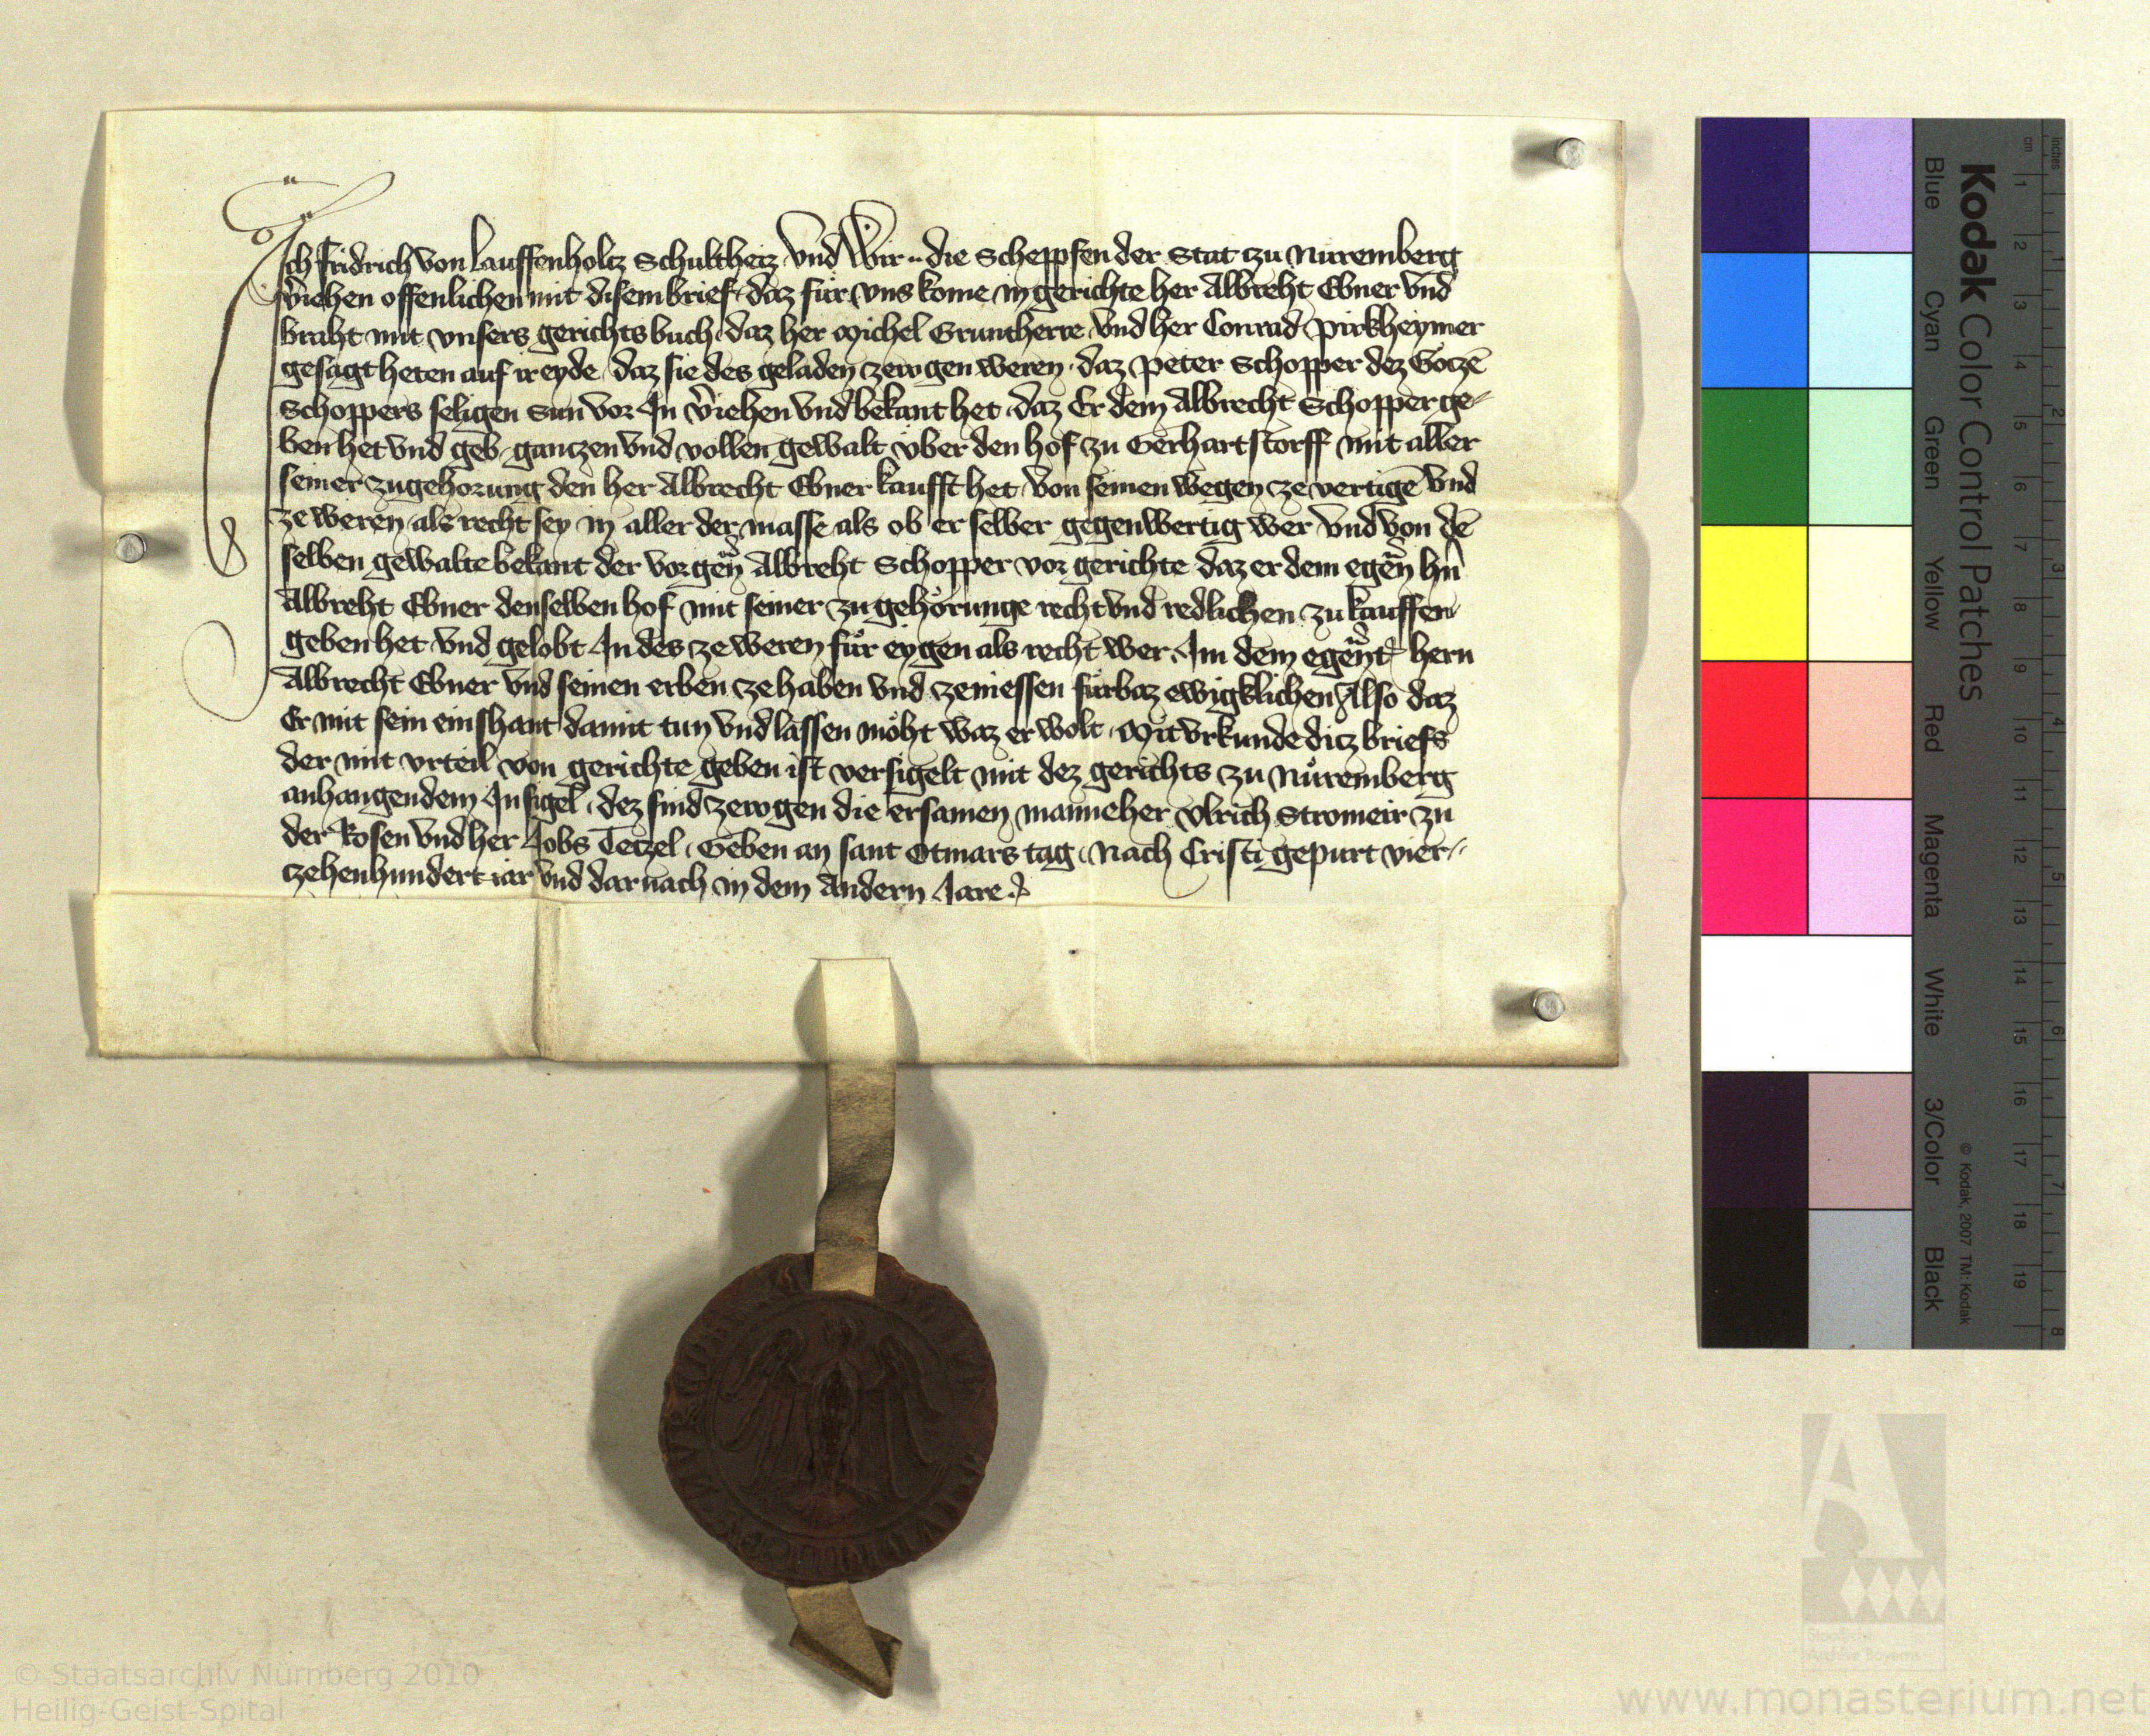 Ich Fridrich von Lauffenholtz Schultheiz vnd Wir die Schepfen der Stat zu Nuremberg
v̄iehen offenlichen mit disem brief daz fur vns kome in gerichte her Albreht Ebner vnd
braht mit vnsers gerichts buch daz her Michel Gruntherre vnd her Conrad Pirkheymer
gesagt heten auf ir eyde daz sie des geladen zewgen weren daz Peter Schopper dez Goczē
Schoppers seligen sun vor In v̄iehen vnd bekant het daz Er dem Albrecht Schopper ge-
ben het vnd geb ganczen vnd vollen gewalt vber den hof zu Gerhartstorff mit aller
seiner zugehorung den her Albrecht Ebner kaufft het von seinen wegen ze vertigē vnd
ze weren als recht sey in aller der masse als ob er selber gegenwertig wer vnd von dē
selben gewalte bekant der vorgen̄ Albreht Schopper vor gerichte daz er dem egen̄ hn̄
Albreht Ebner denselben hof mit seiner zugehörunge recht vnd redlichen zu kauffen
geben het vnd gelobt In des ze weren für eygen als recht wer Im dem egen̄t hern
Albrecht Ebner vnd seinen erben ze haben vnd ze niessen fürbaz ewigklichen Also daz
Er mit sein eins hant damit tun vnd lassen möht waz er wolt Mit vrkunde ditz briefs
der mit vrteil von gerichte geben ist versigelt mit dez gerichts zu Nuremberg
anhangendem Insigel dez sind zewgen die ersamen manne her Vlrich Stromeir zu
der Rosen vnd her Jobs Tetzel Geben an sant Otmars tag Nach Cristi gepurt vier-
zehenhundert iar vnd darnach in dem Andern Jare
Kodak Color Control Patches
Blue Cyan Green Yellow Red Magenta White 3/Color Black
© Kodak, 2007 TM: Kodak
inches 1 2 3 4 5 6 7 8
cm 1 2 3 4 5 6 7 8 9 10 11 12 13 14 15 16 17 18 19
© Staatsarchiv Nürnberg 2010
Heilig-Geist-Spital
www.monasterium.net